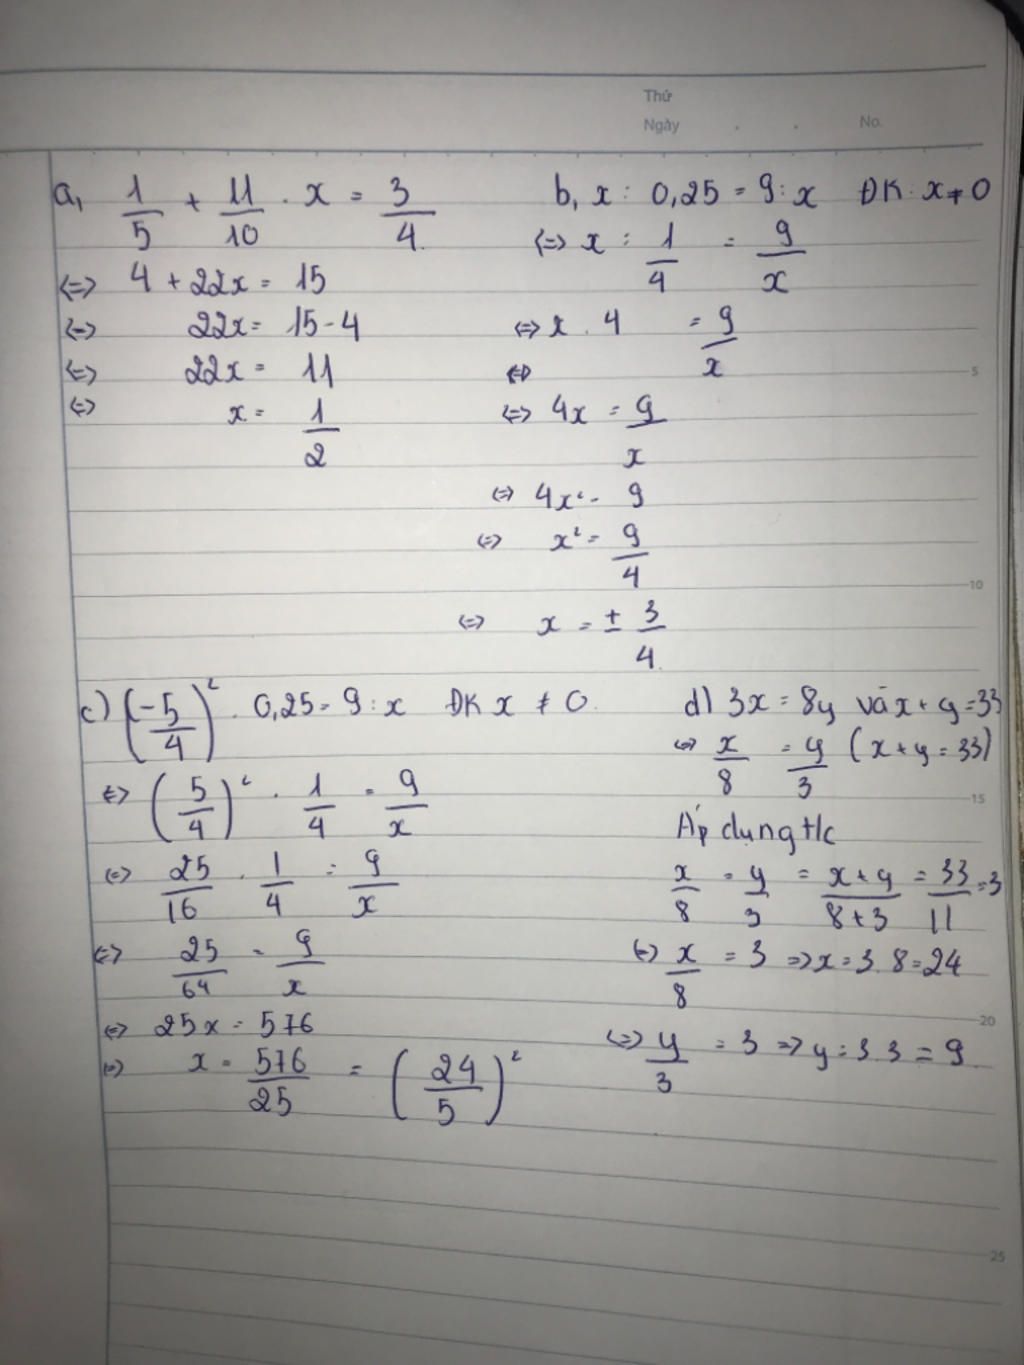 Thứ
Ngày . . No.
a, 1/5 + 11/10 . x = 3/4
<=> 4 + 22x = 15
<=> 22x = 15 - 4
<=> 22x = 11
<=> x = 1/2
b, x : 0,25 = 9 : x ĐK: x ≠ 0
<=> x : 1/4 = 9/x
<=> x . 4 = 9/x
<=>
<=> 4x = 9/x
<=> 4x² = 9
<=> x² = 9/4
<=> x = ± 3/4
c) (-5/4)² . 0,25 = 9 : x ĐK x ≠ 0
<=> (5/4)² . 1/4 = 9/x
<=> 25/16 . 1/4 = 9/x
<=> 25/64 = 9/x
<=> 25x = 576
<=> x = 576/25 = (24/5)²
d) 3x = 8y và x + y = 33
<=> x/8 = y/3 (x + y = 33)
Áp dụng t/c
x/8 = y/3 = x+y/8+3 = 33/11 = 3
<=> x/8 = 3 => x = 3.8 = 24
<=> y/3 = 3 => y = 3.3 = 9
5
10
15
20
25